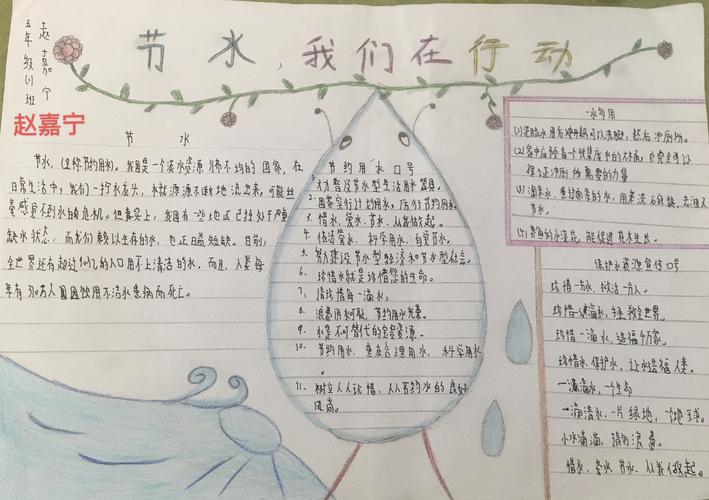 节水,我们在行动
五年级(1)班
赵嘉宁
赵嘉宁
节 水
节水,(全称节约用水)。我国是一个淡水资源分布不均的国家,在
日常生活中,我们一拧水龙头,水就源源不断地流出来,可能丝
毫感觉不到水的危机。但事实上,我国有一些地区已经处于严重
缺水状态,而我们赖以生存的水,也正日益短缺。目前,
全世界还有超过10亿的人口用不上清洁的水,而且,人类每
年有310万人因饮用不洁水患病而死亡。
节约用水口号
1. 大力普及节水型生活用水器具。
2. 国家实行计划用水,厉行节约用水。
3. 惜水、爱水、节水,从我做起。
4. 倡活爱水、科学用水、自觉节水。
5. 努力建设节水型经济和节水型社会。
6. 珍惜水就是珍惜您的生命。
7. 请珍惜每一滴水。
8. 浪费用水可耻,节约用水光荣。
9. 水是不可替代的宝贵资源。
10. 节约用水,重在合理用水,科学用水
。
11. 树立人人珍惜、人人节约水的良好
风尚。
一水多用
(1)洗脸水用后
可以洗脚,然后冲厕所。
(2)家中应预备一个收集废水的大桶,它完全可以
保证冲厕所需要的水量
(3)淘米水、煮过面条的水,用来洗碗筷,去油又
节水。
(4)养鱼的水浇花,能促进花木生长。
保护水资源宣传口号
珍惜一方水,救活一方人。
珍惜一滴水,拯救全世界。
珍惜一滴水,造福千万家。
珍惜水,保护水,让水造福人类。
一滴滴水,一个生命
一滴清水,一片绿地,一个地球。
小水滴滴,请勿浪费。
惜水、爱水、节水、从我做起。